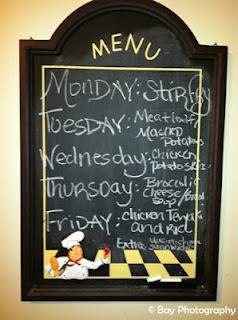 MENU
MONDAY: Stirfry
TUESDAY: Meatloaf/
Mashed
Potatoes
Wednesday: Chicken
Potato
THURSDAY: Broccoli
Cheese/
Soup/
FRIDAY: Chicken
and
Extra:
© Bay Photography